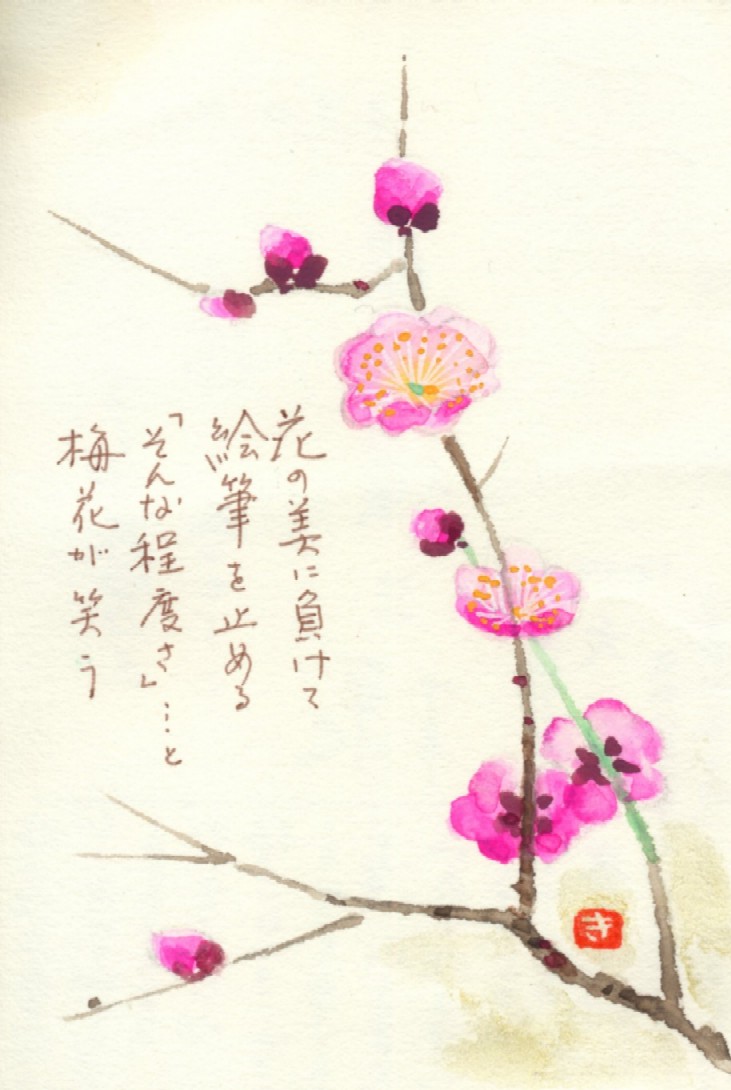 花の美に負けて
絵筆を止める
「そんな程度さ」…と
梅花が笑う
き